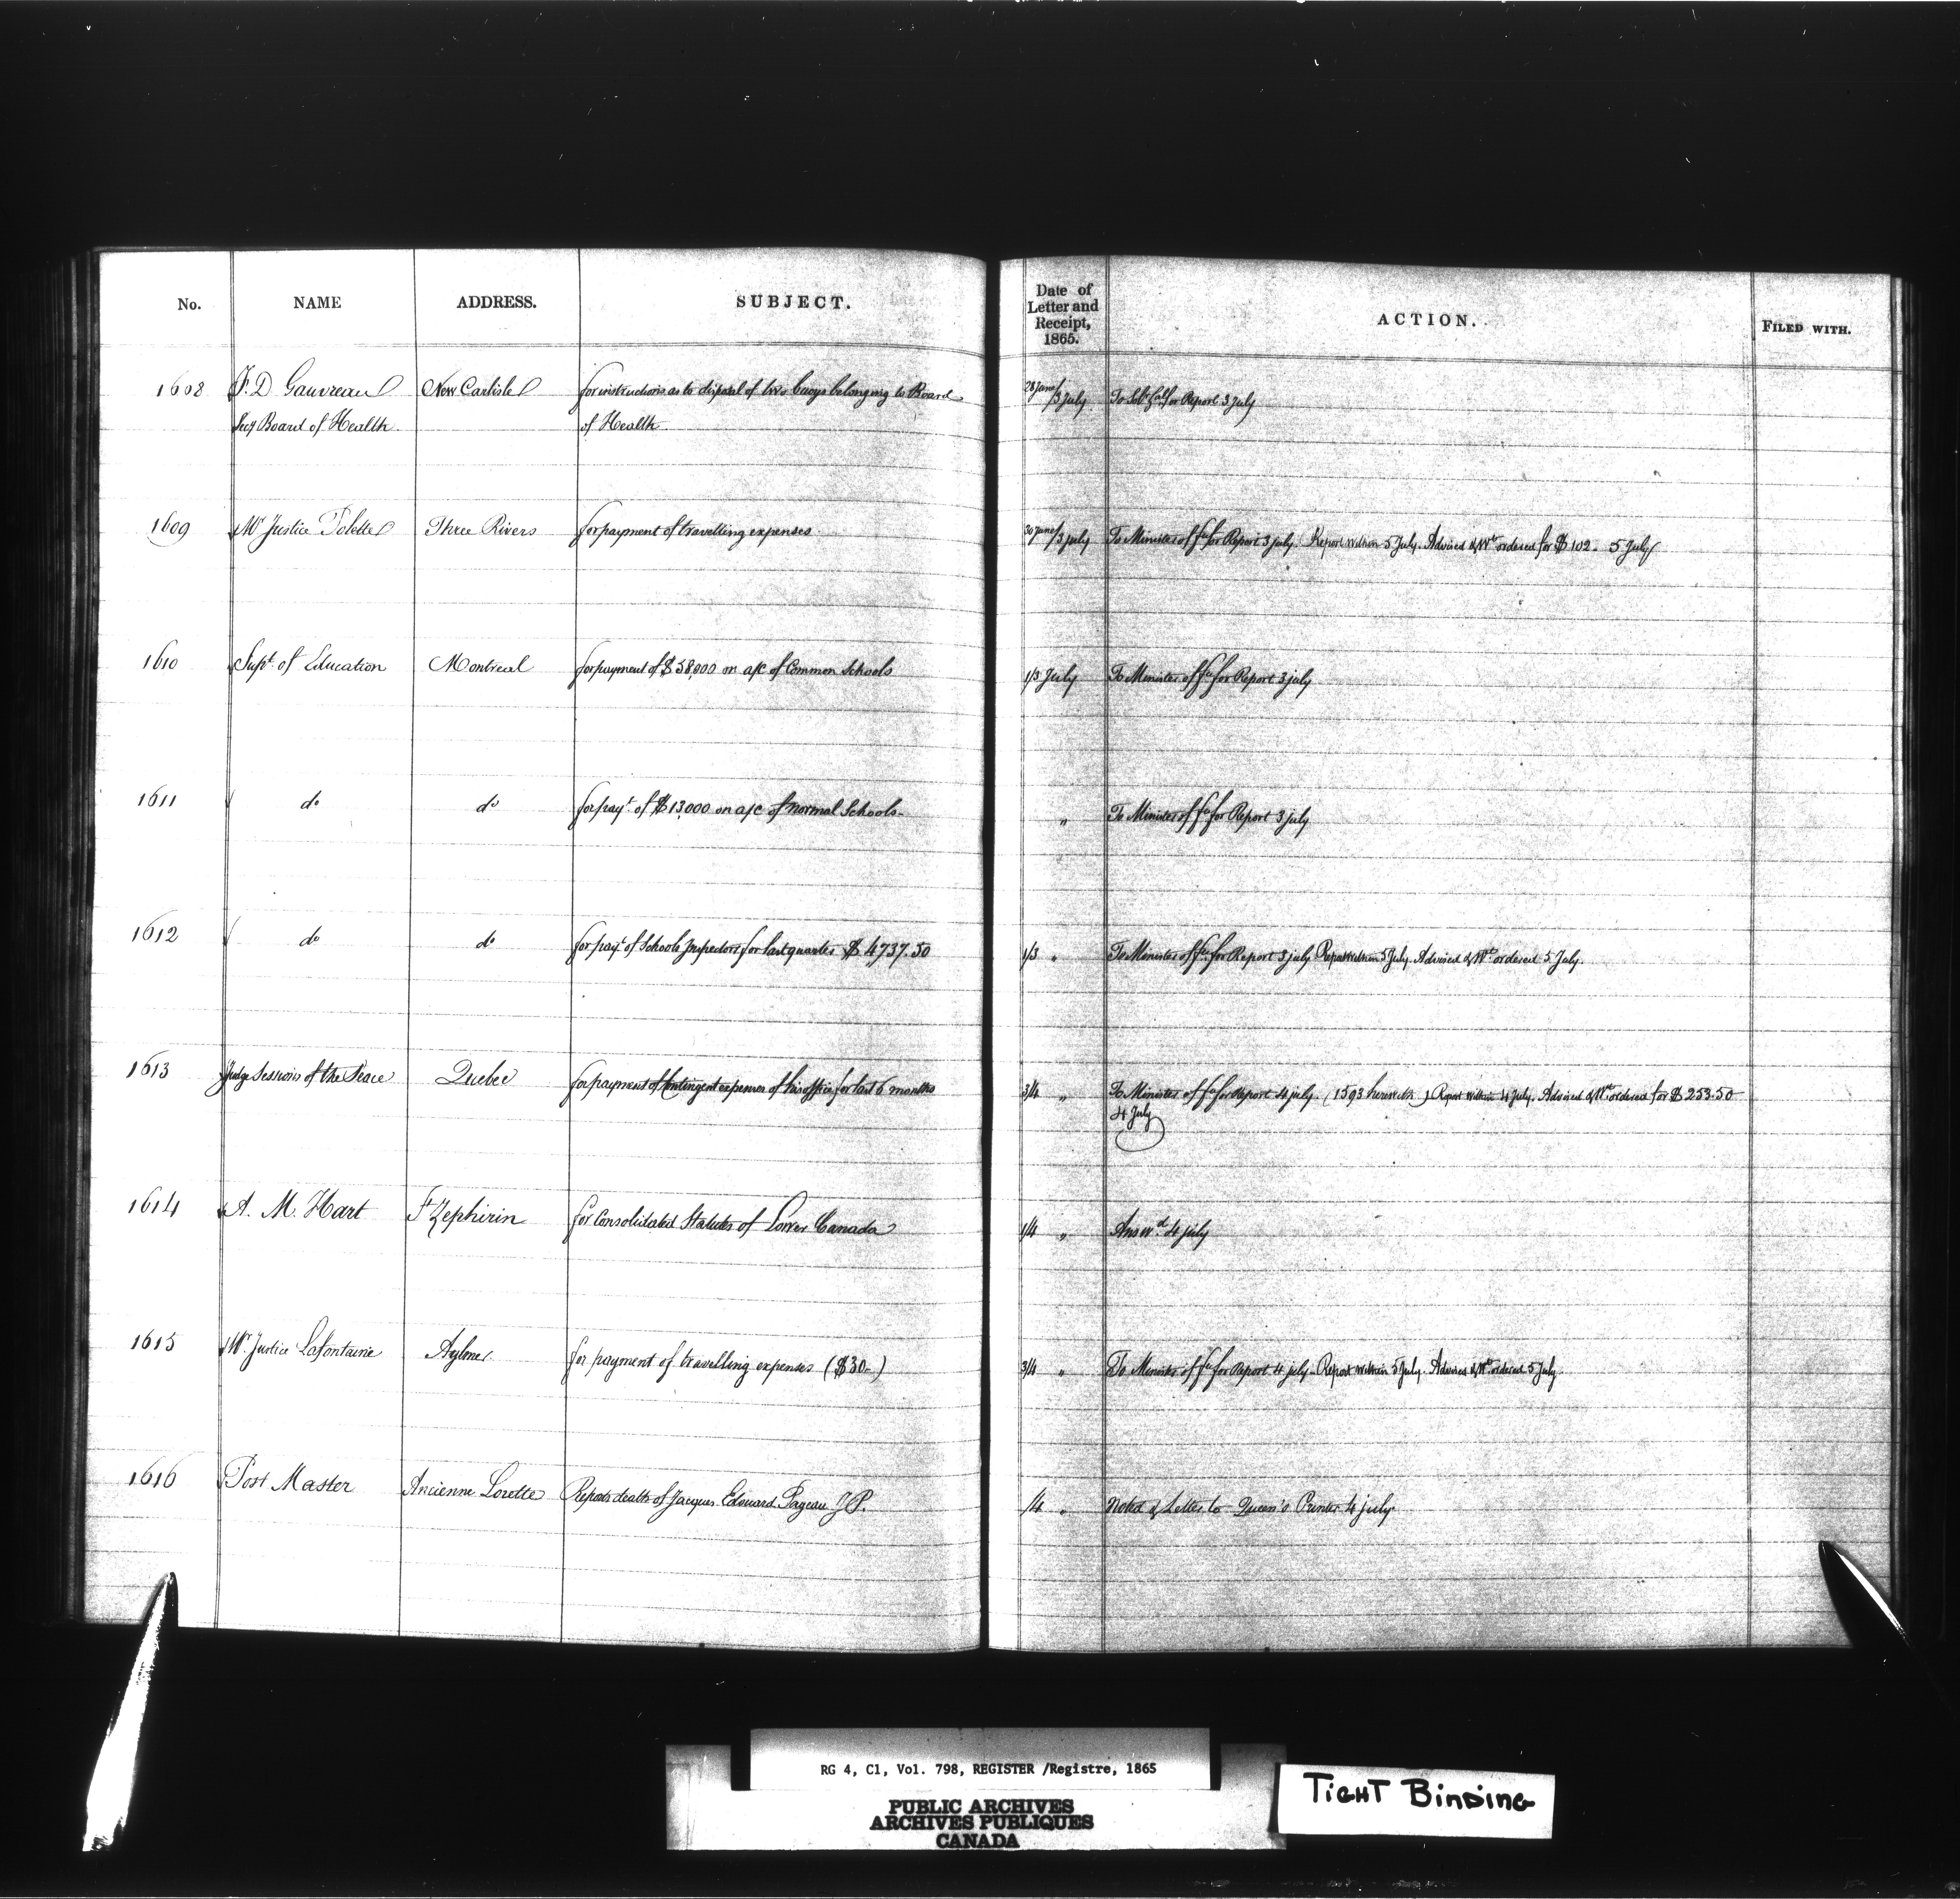 No. NAME ADDRESS. SUBJECT. Date of Letter and Receipt, 1865. ACTION. FILED WITH.
1608 F. D Gauvreau New Carlisle for instructions as to disposal of two buoys belonging to Board 28 June/3 July To for Report 3 July
Secy Board of Health of Health
1609 Mr Justice Polette Three Rivers for payment of travelling expenses. 30 June/3 July To Minister of Fce for Report 3 July. Report within 5 July. Advised & Wt ordered for $102. 5 July
1610 Supt. of Education Montreal for payment of $58,000 on a/c of Common Schools 1/3 July To Minister of Fce for Report 3 July
1611 do do for payt. of $13,000 on a/c of Normal Schools- " To Minister of Fce for Report 3 July
1612 do do for payt. of Schools Inspectors for last quarter $4737.50 1/3 " To Minister of Fce for Report 3 July Report within 5 July. Advised & Wt ordered 5 July.
1613 Judge Sessions of the Peace Quebec for payment of Contingent expenses of his office for last 6 months 3/4 " To Minister of Fce for Report 4 July. (1593 herewith) Report within 4 July. Advised & Wt ordered for $253.50
4 July
1614 A. M. Hart St Zephirin for Consolidated Statutes of Lower Canada 1/4 " Answd. 4 July
1615 Mr. Justice Lafontaine Aylmer. for payment of travelling expenses ($30-) 3/4 " To Minister of Fce for Report 4 July - Report within 5 July. Advised & Wt ordered 5 July
1616 Post Master Ancienne Lorette Reports death of Jacques Edouard Pageau J P. /4 " Noted & Letter to Queen's Printer 4 July
RG 4, C1, Vol. 798, REGISTER /Registre, 1865
PUBLIC ARCHIVES
ARCHIVES PUBLIQUES
CANADA
TIGHT BINDING